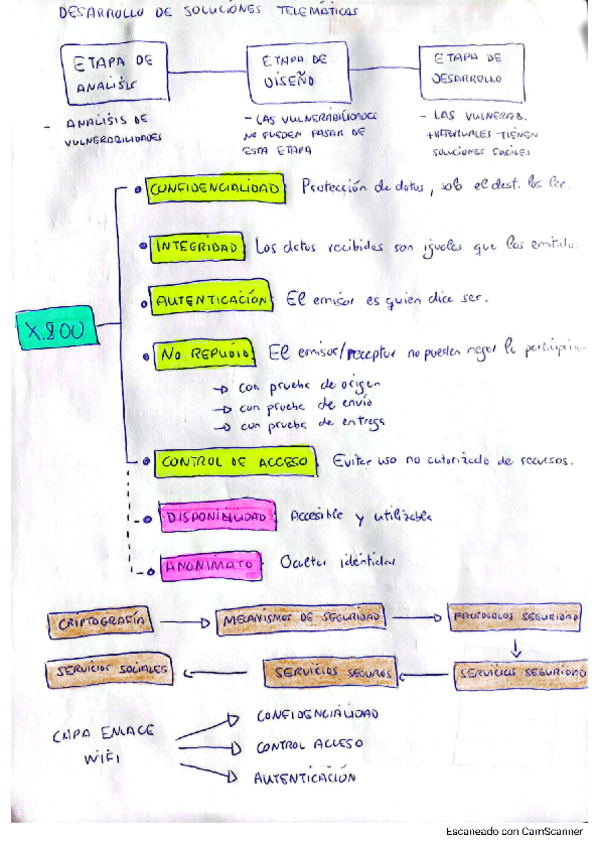 DESARROLLO DE SOLUCIONES TELEMÁTICAS
ETAPA DE ANALISIS
ETAPA DE DISEÑO
ETAPA DE DESARROLLO
- ANALISIS DE VULNERABILIDADES
- LAS VULNERABILIDADES NO PUEDEN PASAR DE ESTA ETAPA
- LAS VULNERAB. + HABITUALES TIENEN SOLUCIONES FACILES
X.800
CONFIDENCIALIDAD Protección de datos, solo el dest. los lee.
INTEGRIDAD Los datos recibidos son iguales que los emitido
AUTENTICACIÓN El emisor es quien dice ser.
NO REPUDIO El emisor/receptor no pueden negar la
→ con prueba de origen
→ con prueba de envío
→ con prueba de entrega
CONTROL DE ACCESO Evitar uso no autorizado de recursos.
DISPONIBILIDAD Accesible y utilizable
ANONIMATO Ocultar identidad
CRIPTOGRAFÍA → MECANISMOS DE SEGURIDAD → PROTOCOLOS SEGURIDAD
SERVICIOS SOCIALES ← SERVICIOS SEGUROS ← SERVICIOS SEGURIDAD
CAPA ENLACE WIFI
CONFIDENCIALIDAD
CONTROL ACCESO
AUTENTICACIÓN
Escaneado con CamScanner